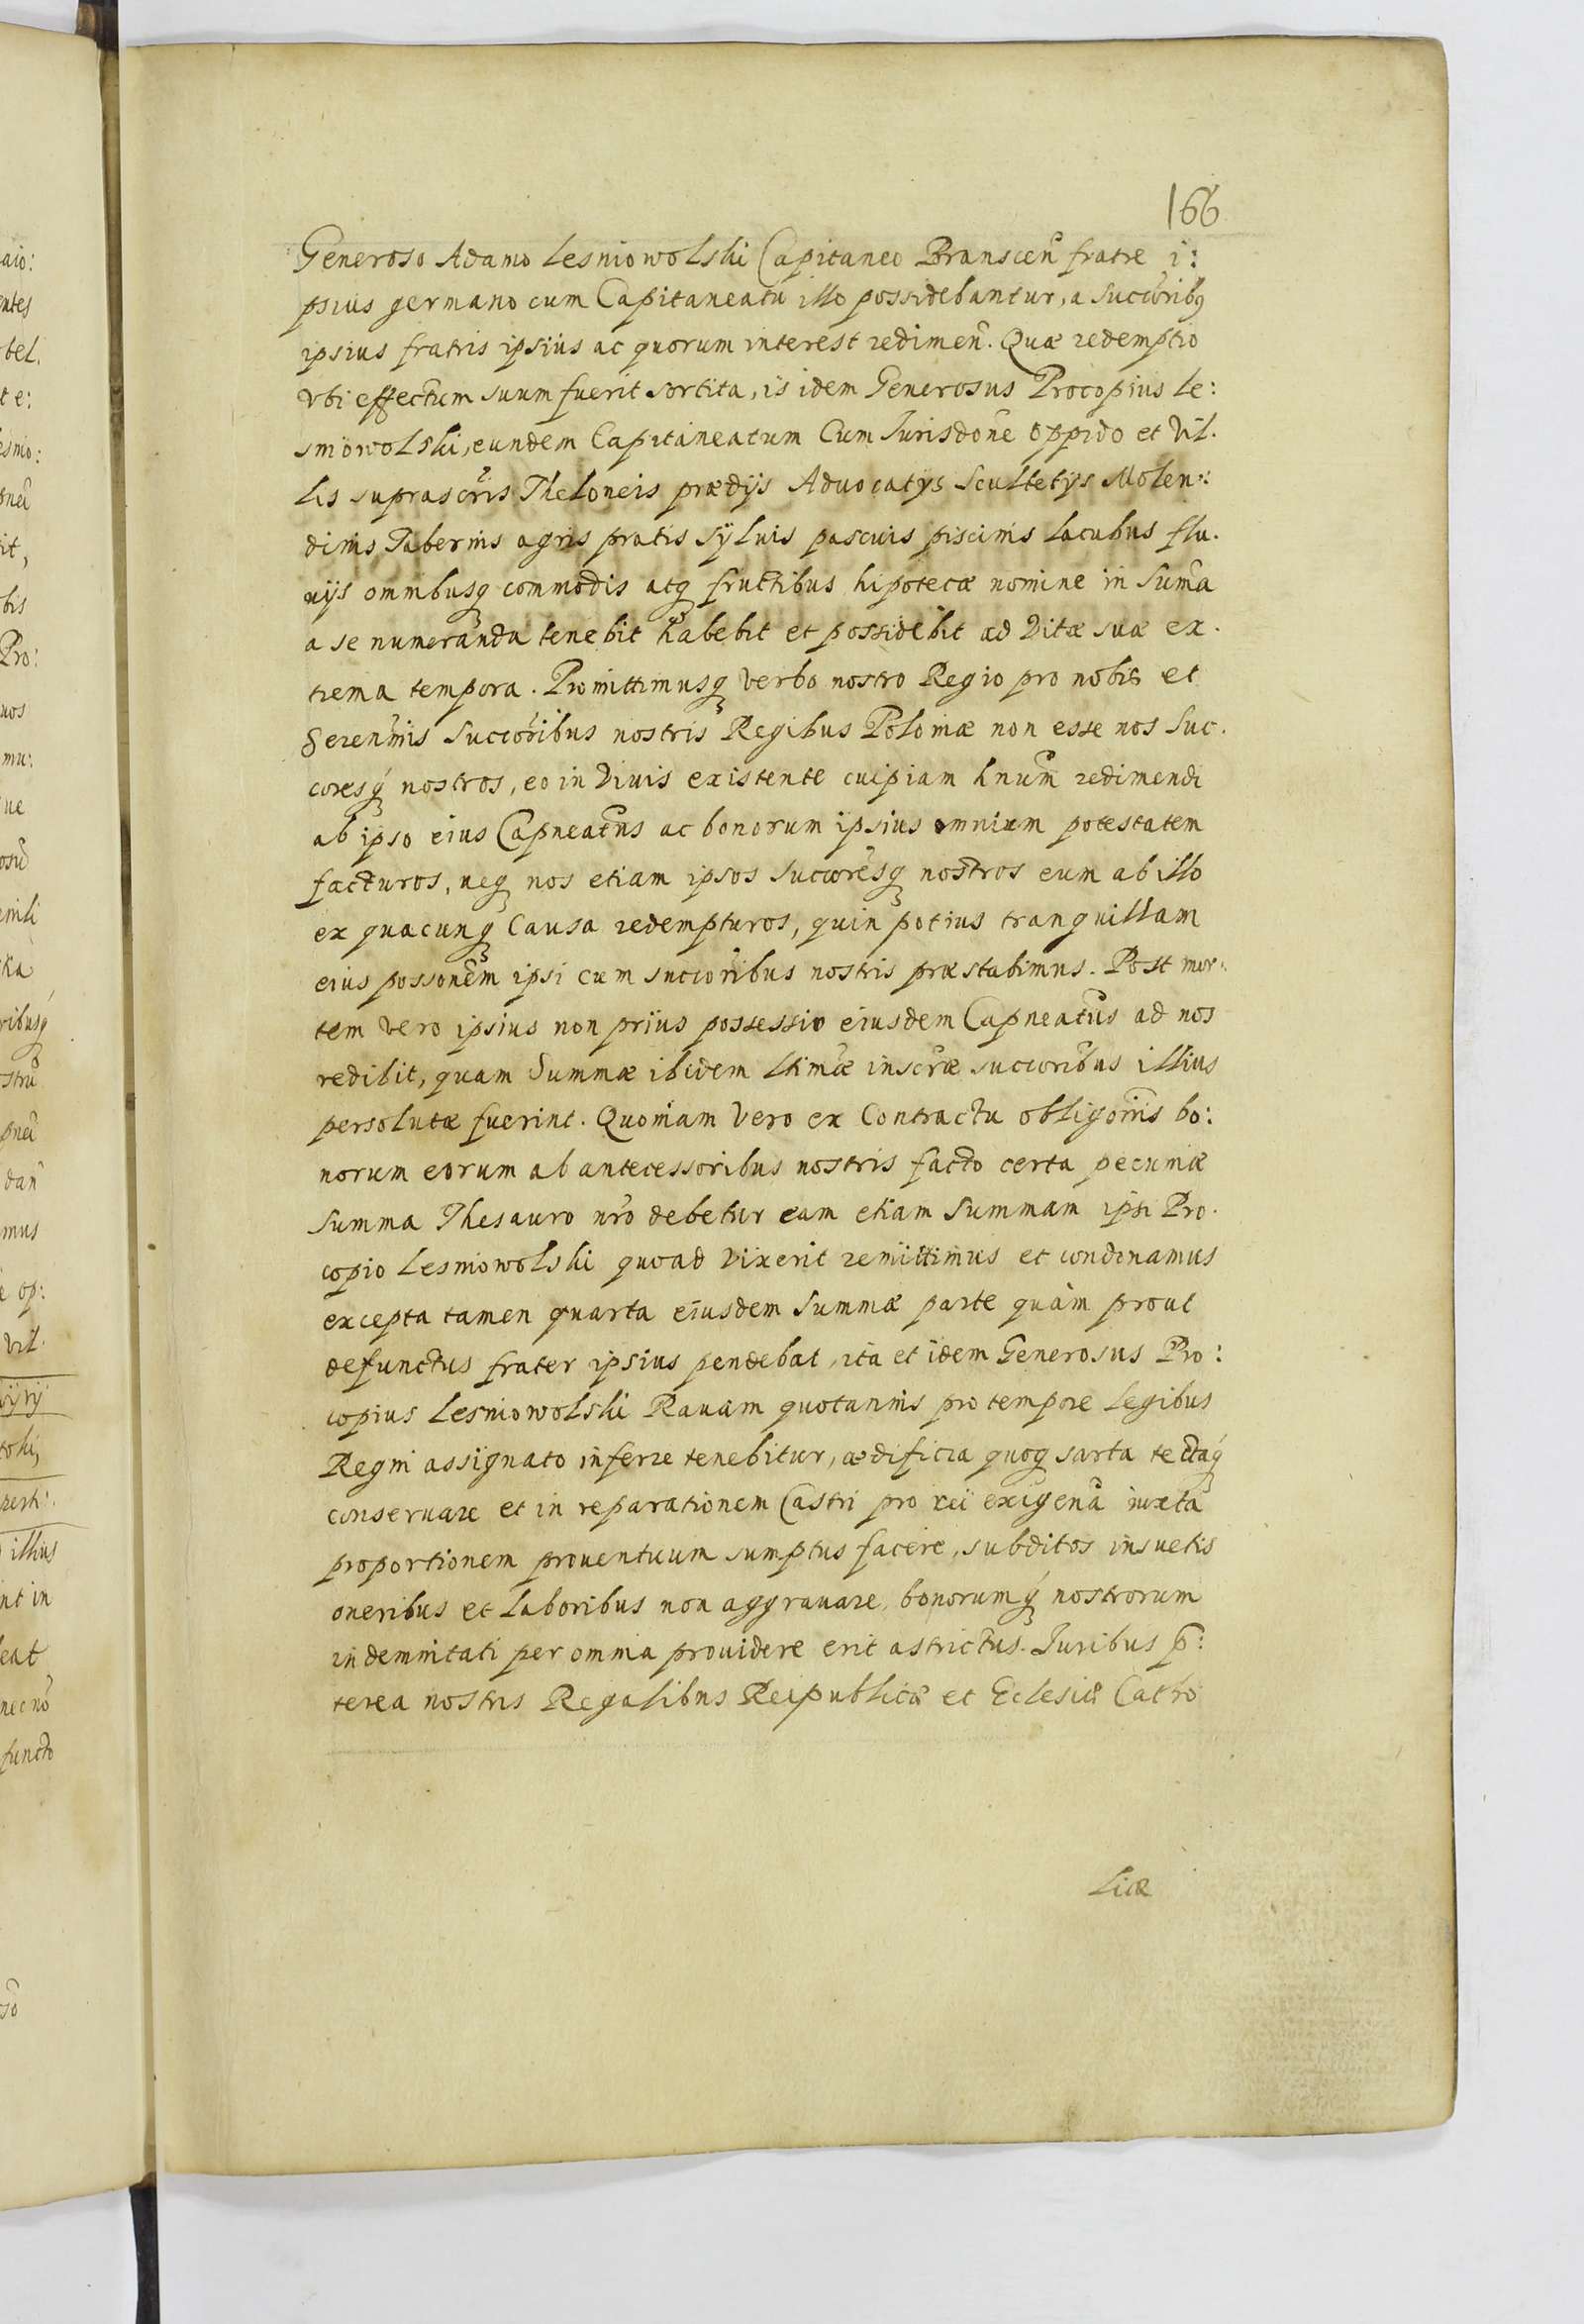 166
Generoso Adamo Lesniowolski Capitaneo Branscen̄ fratre i:
psius germano cum Capitaneatu illo possidebantur, a succoribꝫ
ipsius fratris ipsius ac quorum interest redimen̄. Quæ redemptio
vbi effectum suum fuerit sortita, is idem Generosus Procopius Le:
sniowolski, eundem Capitaneatum Cum Jurisdone oppido et Vil.
lis suprascris Theloneis prædijs Aduocatys Scultetys Molen:
dinis Tabernis agris pratis Syluis pascuis piscinis lacubus flu.
uijs omnibusq commodis atq fructibus hipotecæ nomine in Suma
a se numeranda tenebit habebit et possidebit ad Vitæ suæ ex.
trema tempora. Promittimusq verbo nostro Regio pro nobis et
Serenmis Succoribus nostris Regibus Poloniæ non esse nos Suc.
coresq nostros, eo in Viuis existente cuipiam hnum redimendi
ab ipso eius Capneatus ac bonorum ipsius omnium potestatem
facturos, neq nos etiam ipsos succoresq nostros eum ab illo
ex quacunq Causa redempturos, quin potius tranquillam
eius possonem ipsi cum succoribus nostris præstabimus. Post mor:
tem vero ipsius non prius possessio eiusdem Capneatus ad nos
redibit, quam Summæ ibidem ltimæ inscræ succoribus illius
persolutæ fuerint. Quoniam Vero ex Contractu obligonis bo:
norum eorum ab antecessoribus nostris facto certa pecuniæ
Summa Thesauro nro debetur eam etiam Summam ipsi Pro.
copio Lesniowolski quoad Vixerit remittimus et condonamus
excepta tamen quarta eiusdem Summæ parte quam prout
defunctus frater ipsius pendebat, ita et idem Generosus Pro:
copius Lesniowolski Rauam quotannis pro tempore legibus
Regni assignato inferre tenebitur, ædificia quoq sarta tectaq
conseruare et in reparationem Castri pro rei exigena iuxta
proportionem prouentuum sumptus facere, subditos insuetis
oneribus et laboribus non aggrauare, bonorumq nostrorum
indemnitati per omnia prouidere erit astrictus. Juribus p̄:
terea nostris Regalibus Reipublicæ et Eclesiæ Catho
licæ